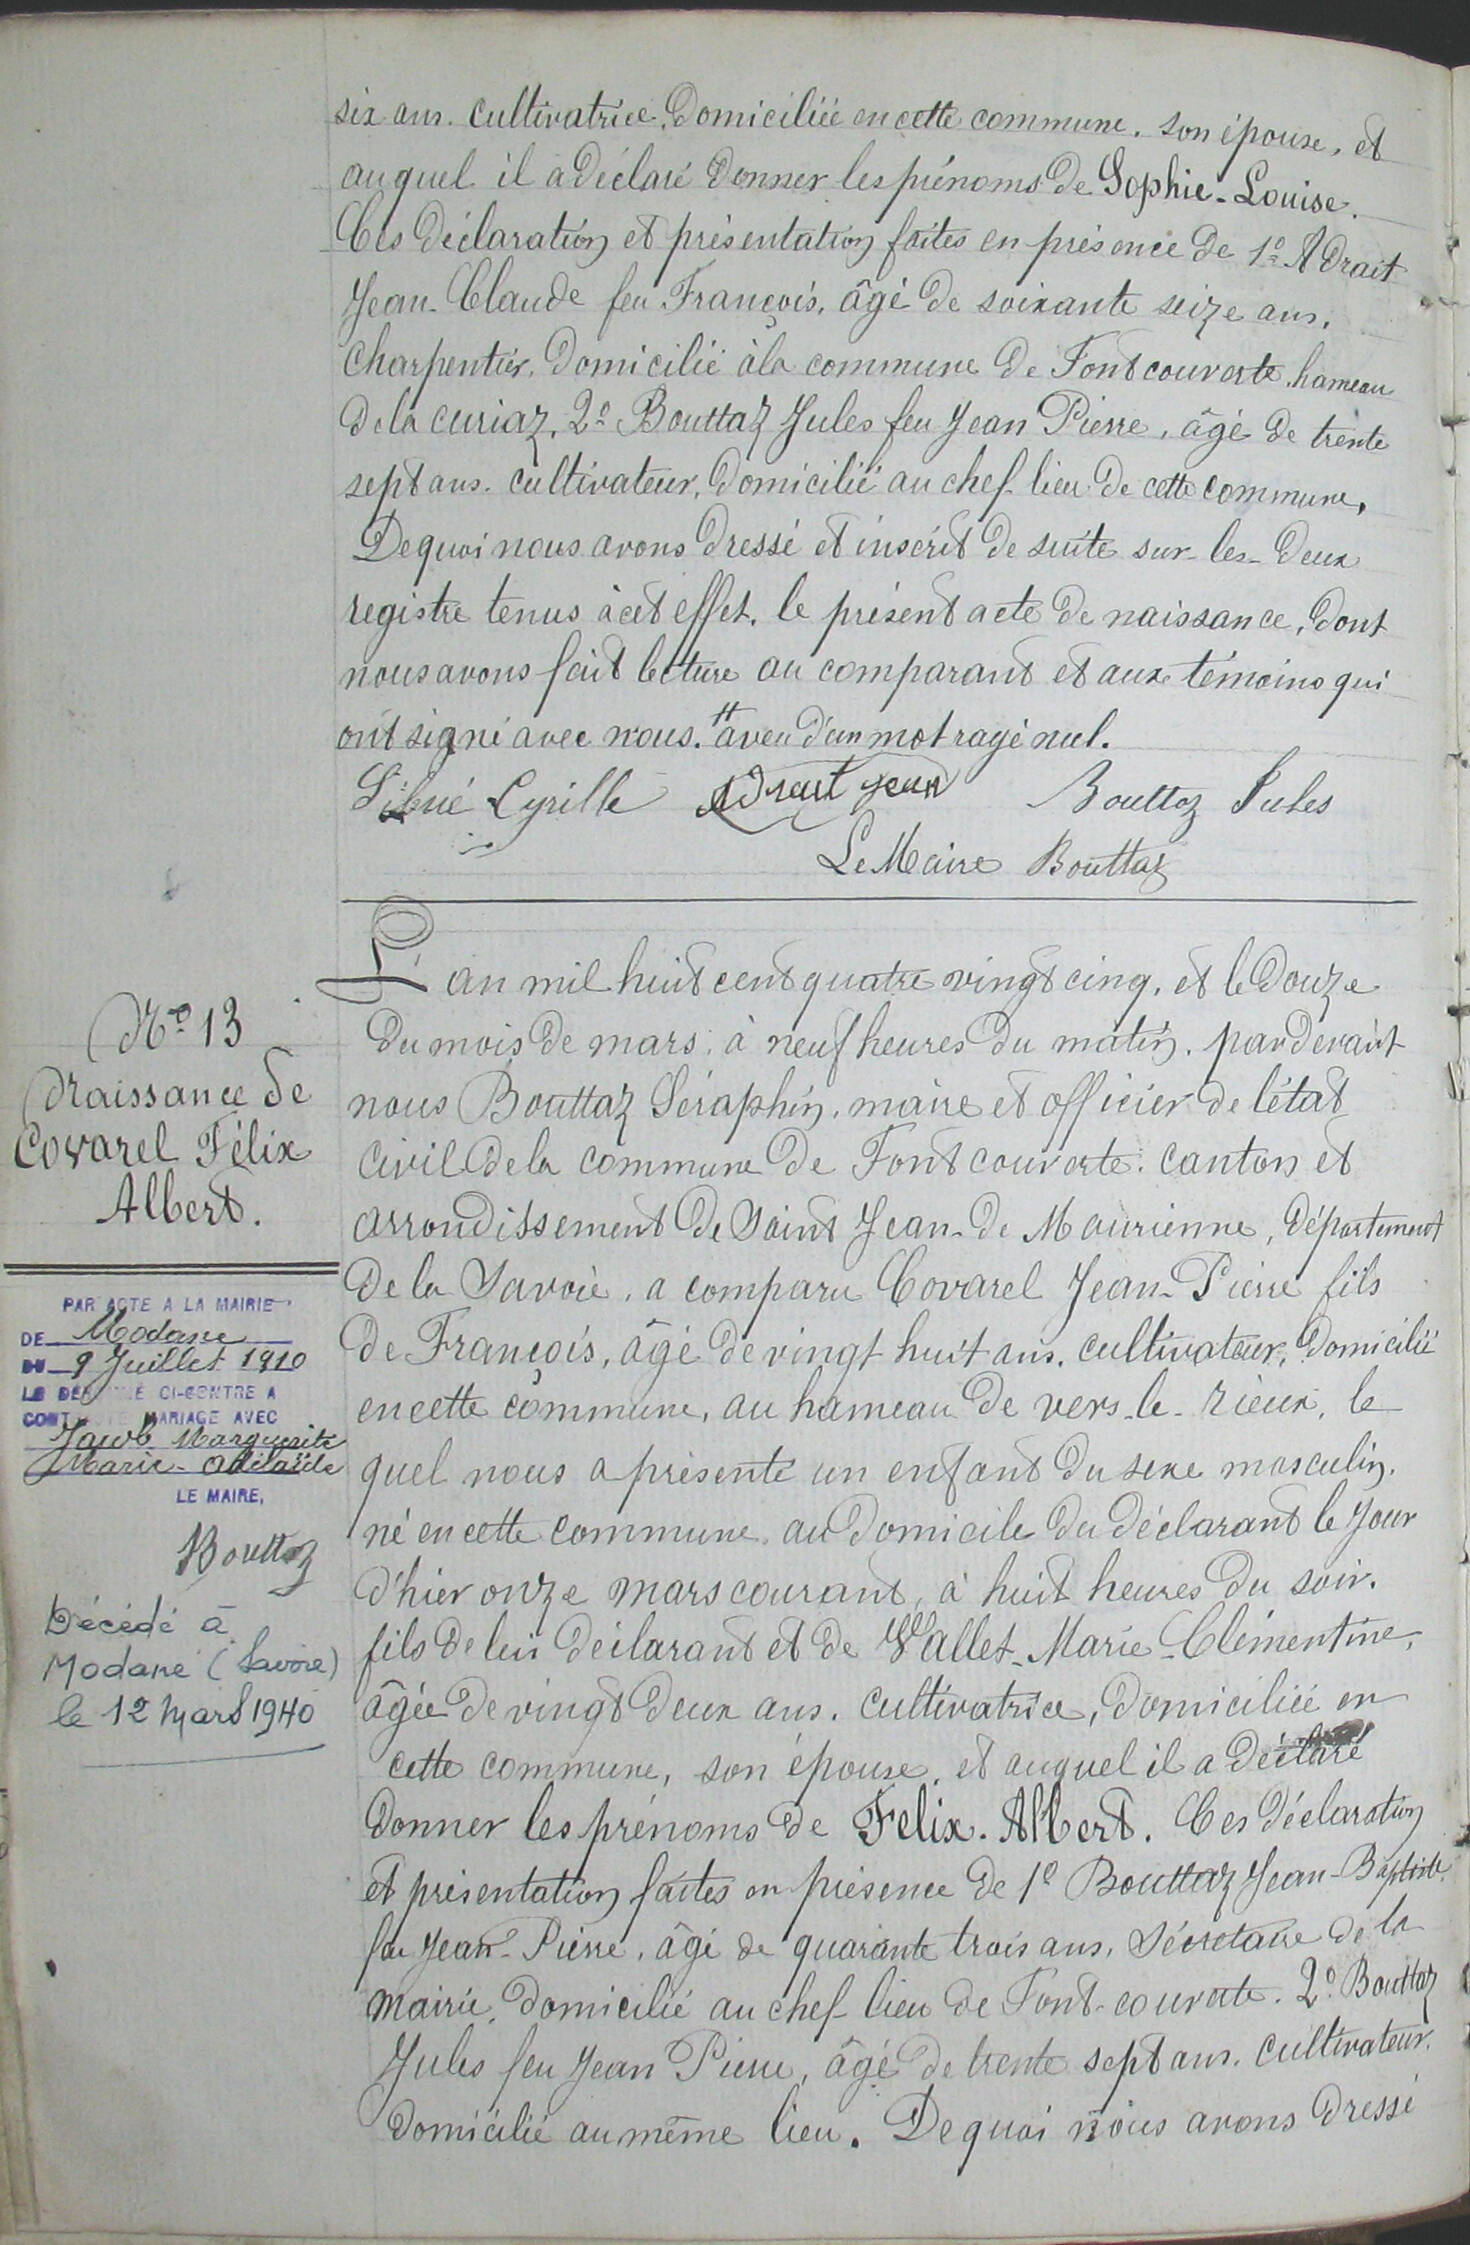 six ans. cultivatrice, domiciliée en cette commune. son épouse, et
auquel il a déclaré donner les prénoms de Sophie-Louise.
Ces déclaration et présentation faites en présence de 1º Adrait
Jean-Claude feu François, âgé de soixante seize ans,
charpentier, domicilié à la commune de Fontcouverte, hameau
de la curiaz, 2º Bouttaz Jules feu Jean Pierre, âgé de trente
sept ans. cultivateur, domicilié au chef-lieu de cette commune,
De quoi nous avons dressé et inscrit de suite sur-les-deux
registre tenus à cet effet, le présent acte de naissance, dont
nous avons fait lecture au comparant et aux témoins qui
ont signé avec nous. aveu d'un mot rayé nul.
Cyrille Adrait jean Bouttaz Jules
Le Maire Bouttaz
Nº 13
Naissance de
Covarel Félix
Albert.
PAR ACTE A LA MAIRIE
DE Modane
DU 9 Juillet 1910
LE DÉNOMMÉ CI-CONTRE A
CONTRACTÉ MARIAGE AVEC
Jacob Marguerite
Marie-Adélaïde
LE MAIRE,
Bouttaz
Décédé à
Modane (Savoie)
le 12 Mars 1940
L'an mil huit cent quatre vingt cinq, et le douze
du mois de mars, à neuf heures du matin, pardevant
nous Bouttaz Séraphin, maire et officier de l'état
civil de la commune de Fontcouverte. canton et
arrondissement de Saint Jean-de Maurienne, département
de la Savoie, a comparu Covarel Jean-Pierre fils
de François, âgé de vingt huit ans, cultivateur, domicilié
en cette commune, au hameau de vers-le-rieux, le
quel nous a présenté un enfant du sexe masculin,
né en cette commune au domicile du déclarant le jour
d'hier onze mars courant, à huit heures du soir.
fils de lui déclarant et de Vallet-Marie-Clémentine,
âgée de vingt deux ans, cultivatrice, domiciliée en
cette commune, son épouse, et auquel il a déclaré
donner les prénoms de Felix-Albert. Ces déclaration
et présentation faites en présence de 1º Bouttaz Jean-Baptiste
feu Jean-Pierre, âgé de quarante trois ans, Sécretaire de la
mairie, domicilié au chef-lieu de Font-couverte. 2º Bouttaz
Jules feu Jean Pierre, âgé de trente sept ans. cultivateur.
domicilié au même lieu. De quoi nous avons dressé